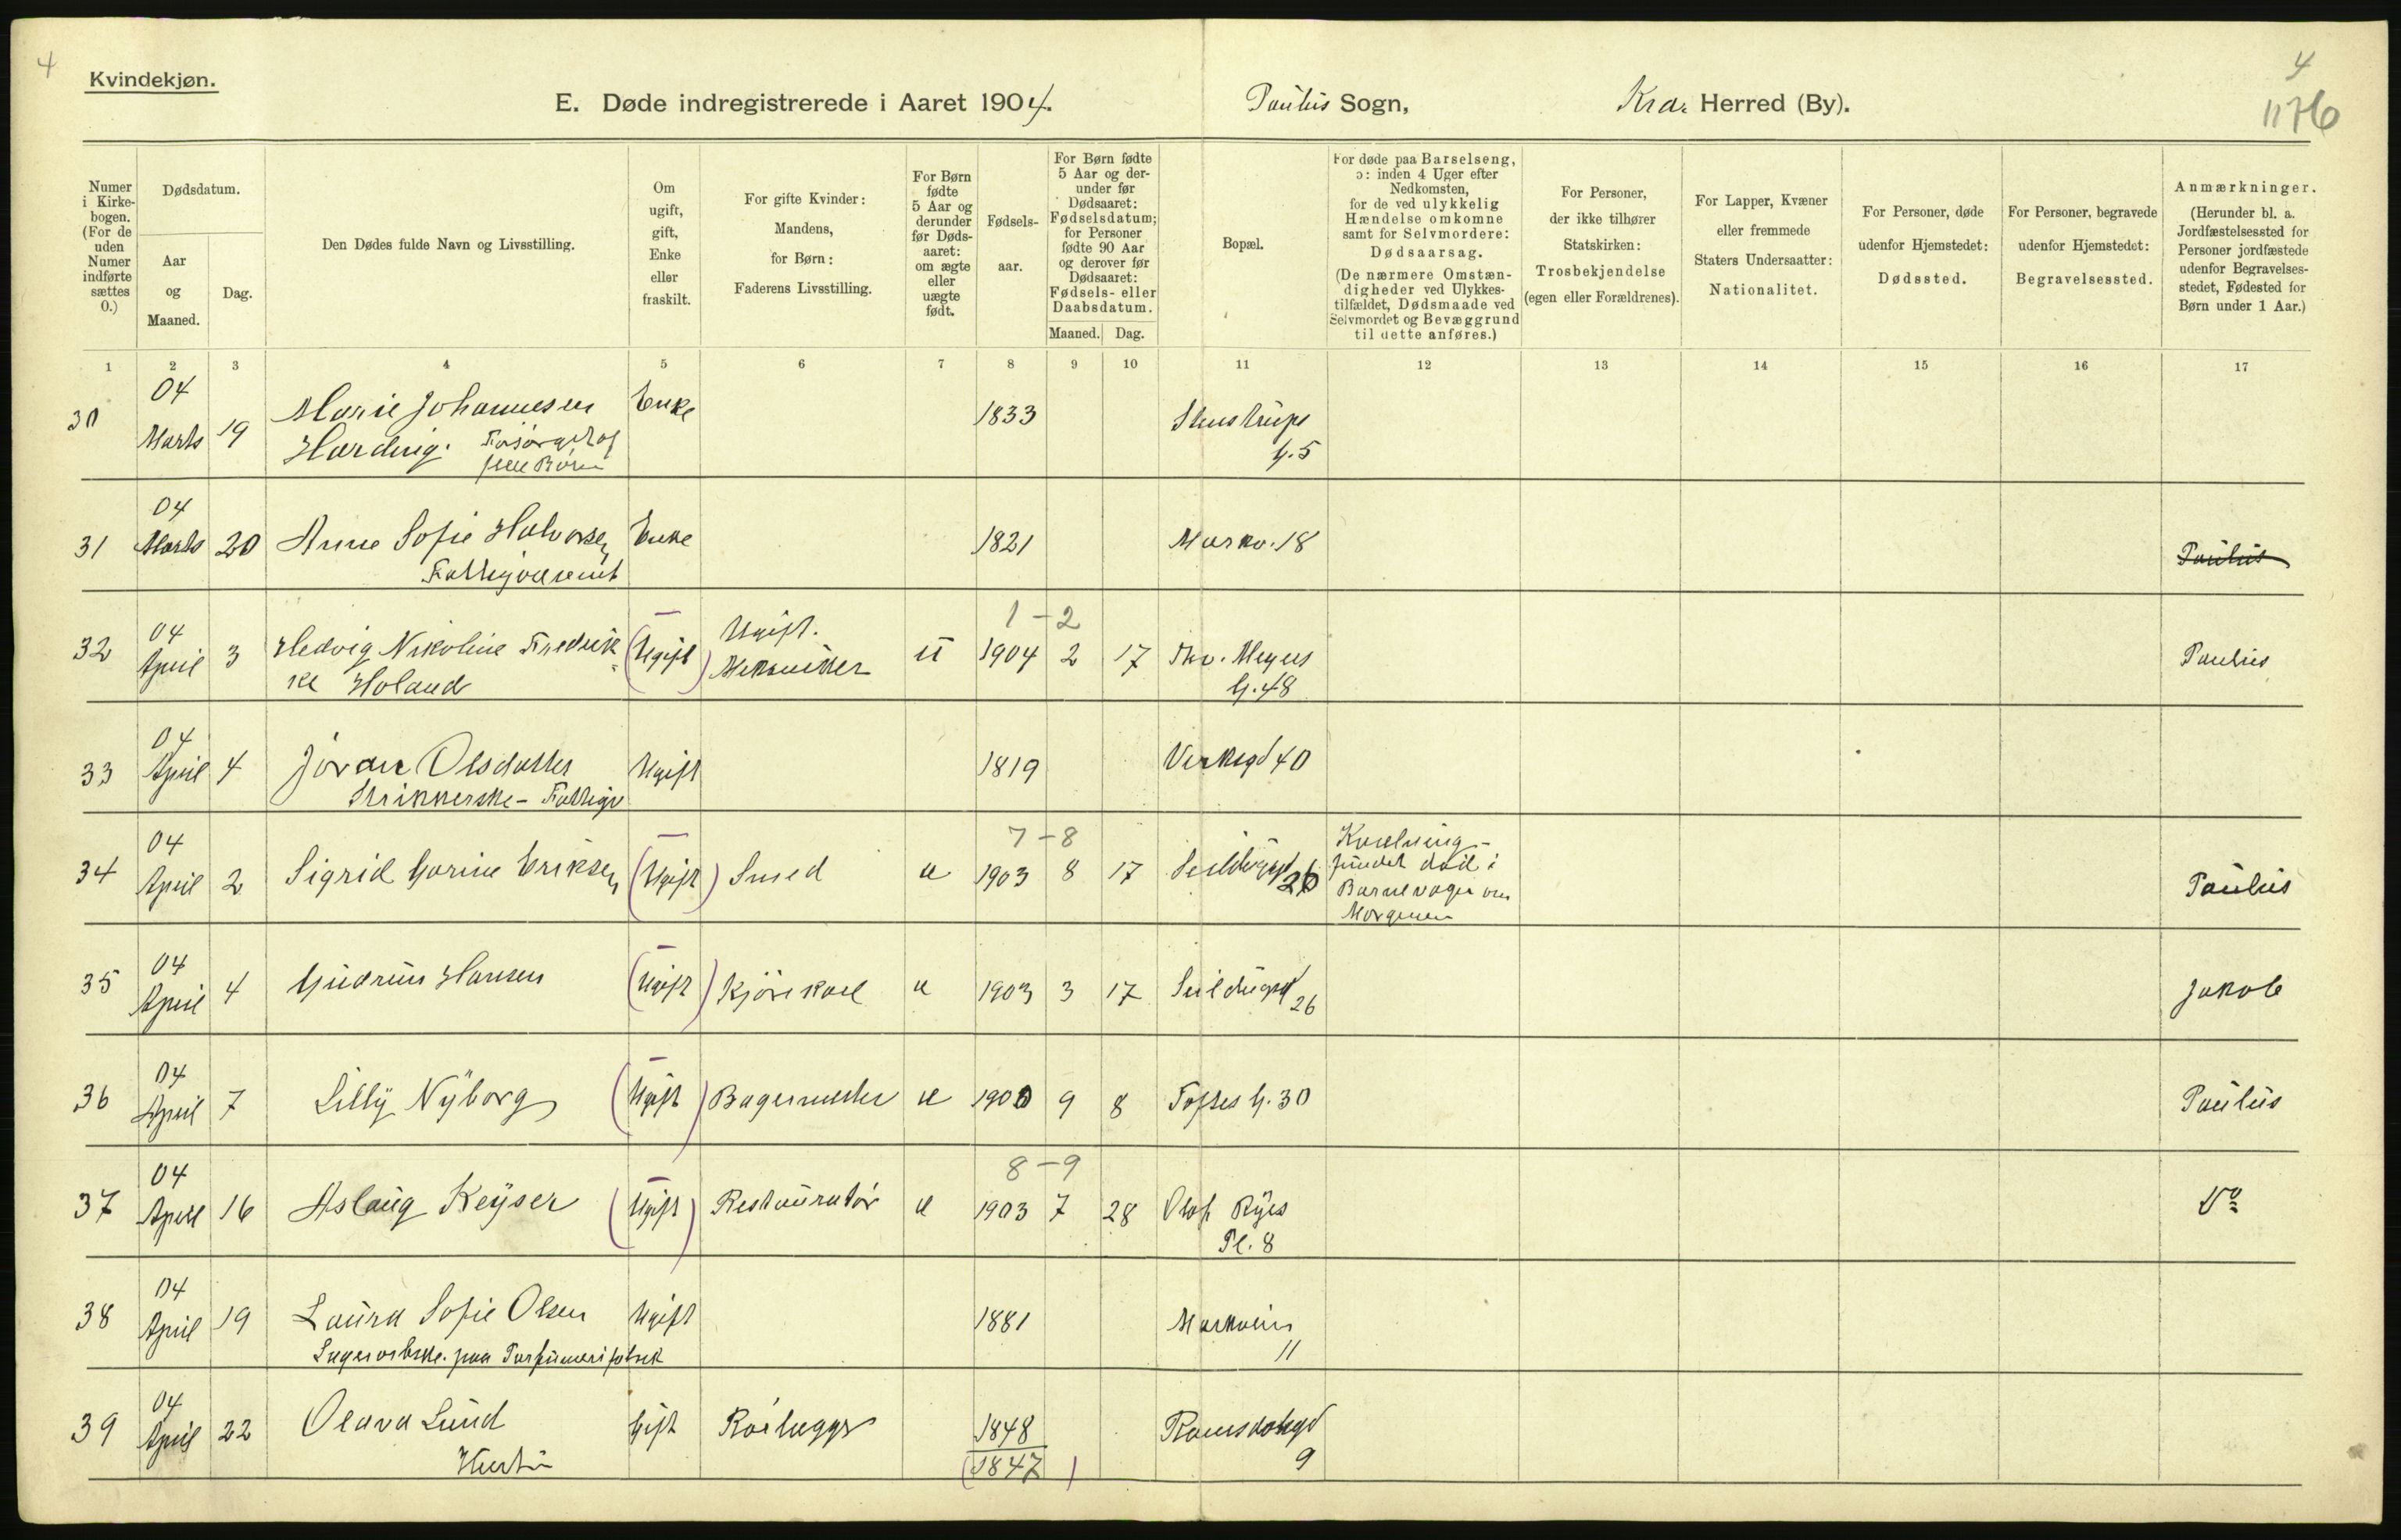 4
Kvindekjøn.
E. Døde indregistrerede i Aaret 1904.
Paulus Sogn,
Kra. Herred (By).
4
1176
Numer i Kirkebogen. (For de uden Numer indførte sættes 0.)
Dødsdatum.
Aar og Maaned.
Dag.
Den Dødes fulde Navn og Livsstilling.
Om ugift, gift, Enke eller fraskilt.
For gifte Kvinder: Mandens, for Børn: Faderens Livsstilling.
For Børn fødte 5 Aar og derunder før Dødsaaret: om ægte eller uægte født.
Fødsels-aar.
For Børn fødte 5 Aar og derunder før Dødsaaret: Fødselsdatum; for Personer fødte 90 Aar og derover før Dødsaaret: Fødsels- eller Daabsdatum.
Maaned. Dag.
Bopæl.
For døde paa Barselseng, ɔ: inden 4 Uger efter Nedkomsten, for de ved ulykkelig Hændelse omkomne samt for Selvmordere: Dødsaarsag. (De nærmere Omstændigheder ved Ulykkestilfældet, Dødsmaade ved Selvmordet og Bevæggrund til dette anføres.)
For Personer, der ikke tilhører Statskirken: Trosbekjendelse (egen eller Forældrenes).
For Lapper, Kvæner eller fremmede Staters Undersaatter: Nationalitet.
For Personer, døde udenfor Hjemstedet: Dødssted.
For Personer, begravede udenfor Hjemstedet: Begravelsessted.
Anmærkninger. (Herunder bl. a. Jordfæstelsessted for Personer jordfæstede udenfor Begravelsesstedet, Fødested for Børn under 1 Aar.)
1 2 3 4 5 6 7 8 9 10 11 12 13 14 15 16 17
30 04 Marts 19 Marie Johannesen Enke 1833 Stenstrups
Harding. Forsørget af G. 5
sine Børn
31 04 Marts 20 Anne Sofie Halvorsen Enke 1821 Markv. 18 Paulus
Fattigvæsenet
1-2
32 04 April 3 Hedvig Nikoline Fredrik- (Ugift) Ugift. u 1904 2 17 Thv. Meyers Paulus
ke Holand Mekaniker G. 48
33 04 April 4 Joran Olsdatter Ugift 1819 Verksgd 40
Strikkerske - Fattigv
7-8
34 04 April 2 Sigrid Garine Eriksen (Ugift) Smed æ 1903 8 17 Seilduggd 26 Kvælning - Paulus
fundet død i
Barnevogn om
Morgenen
35 04 April 4 Gudrun Hansen (Ugift) Kjørekarl æ 1903 3 17 Seilduggd 26 Jakob
36 04 April 7 Lilly Nyborg (Ugift) Bagermester æ 1900 9 8 Toftes G. 30 Paulus
8-9
37 04 April 16 Aslaug Keyser (Ugift) Restauratør æ 1903 7 28 Olaf Ryes Do
Pl. 8
38 04 April 19 Laura Sofie Olsen Ugift 1881 Markveien
Lagerarbske. paa Parfumerifabrik 11
39 04 April 22 Olava Lund Gift Rørlægger 1848 Romsdalsgd
Hustru (1847) 9